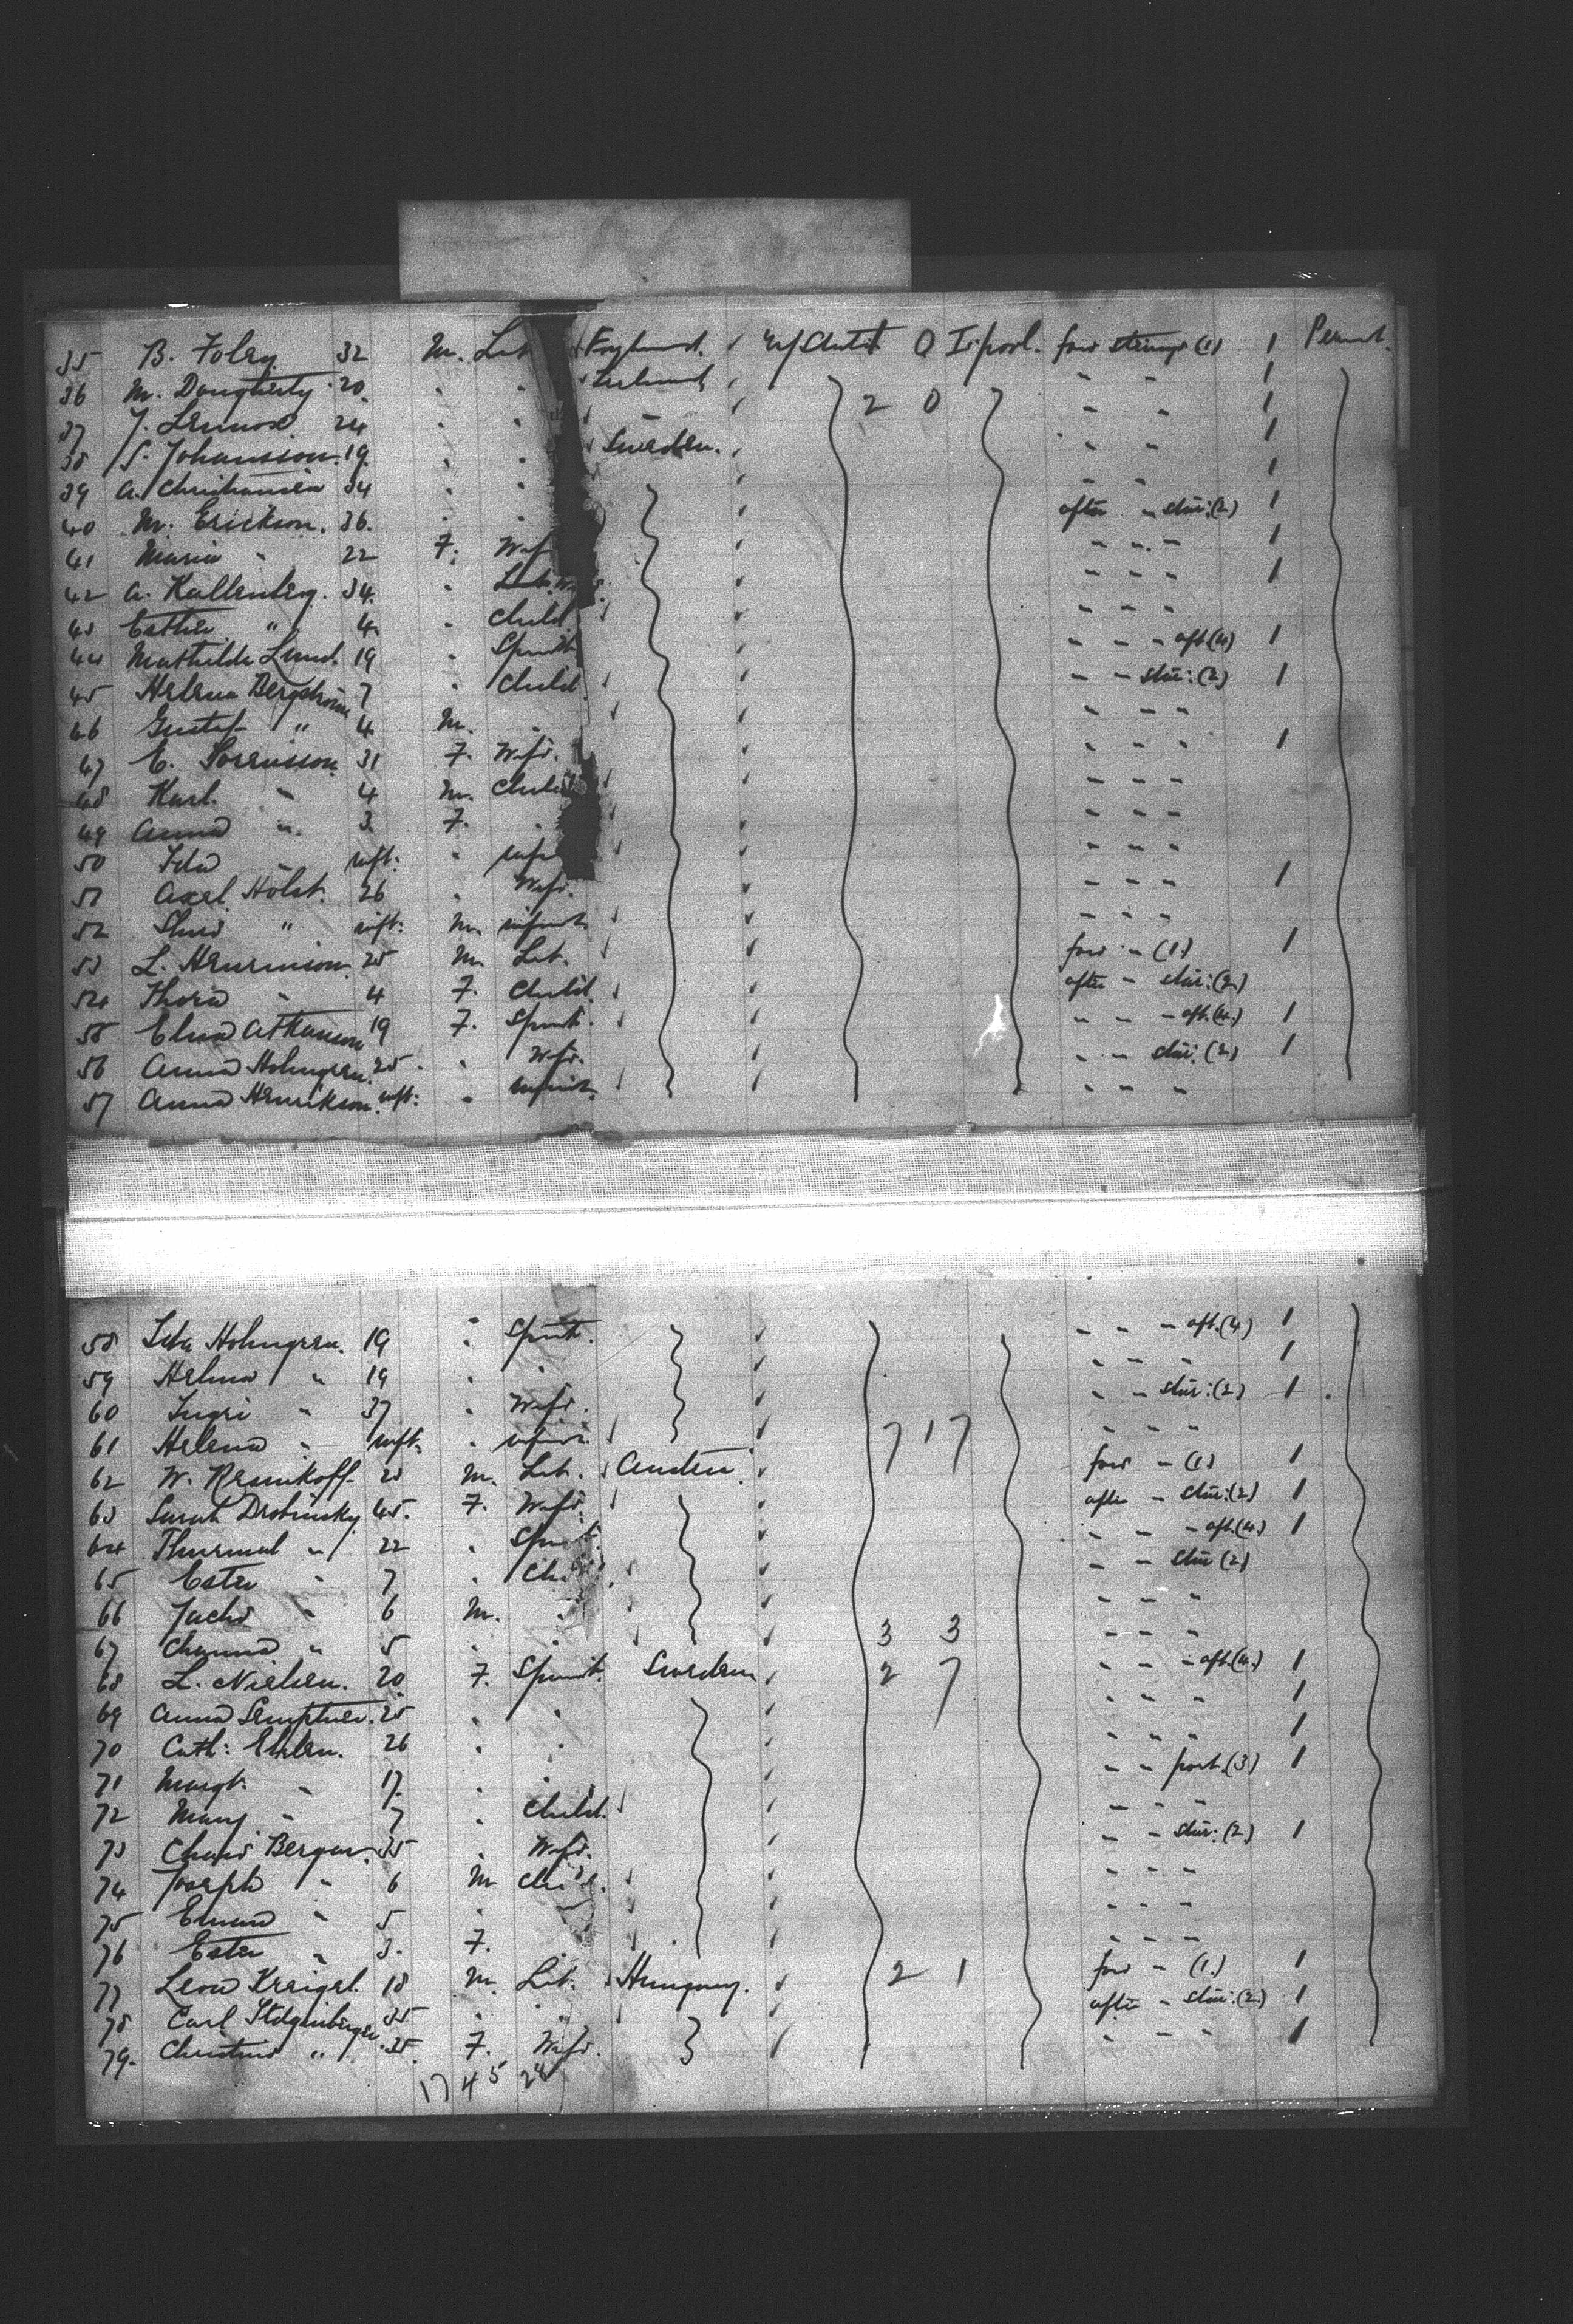 35 B. Foley 32 M. Lab England. U/States L'pool. for steerage (1) 1 Permt.
36 M. Dougherty 20 " " Ireland " " 1
37 J. Lennox 24 " " " 2 0 " " 1
38 S. Johansson 19 " " Sweden. " " 1
39 A. Christiansen 34 " " " " 1
40 M. Erickson. 36. " " after " star:(2) 1
41 Maria " 22 F. Wife " " " 1
42 A. Kallenberg. 34. " " " " 1
43 Esther " 4 " Child " " "
44 Mathilda Lund. 19 " Spinst " " " aft.(4) 1
45 Helena Bergstrom 7 " Child " " star:(2) 1
46 Gustaf " 4 M. " " " "
47 E. Sorensson 31 F. Wife. " " " 1
48 Karl. " 4 M. Child " " "
49 Anna " 3 F. " " " "
50 Ida " inft. " infa " " "
51 Axel Holst. 26 " Wife. " " " 1
52 " inft: M. infant " " "
53 L. Henrinson 25 M. Lab. for " (1) 1
54 Thora " 4 F. Child. after " star:(2)
55 19 F. Spinst. " " " aft.(4) 1
56 Anna Holmgren. 25 " Wife. " " star:(2) 1
57 Anna Henrikson. inft: " infant. " " "
58 Ida Holmgren. 19 " Spinst. " " " aft.(4) 1
59 Helma " 19 " " " " " 1
60 Ingri " 37 " Wife. " " star:(2) 1
61 Helena " inft. " infant. 7 1 7 " " "
62 W. Resnikoff 23 M. Lab. Austria. for " (1) 1
63 Sarah Drobinsky 45. F. Wife after " star:(2) 1
64 " 22 " Spi " " " aft.(4) 1
65 Ester " 7 " Ch " " star (2)
66 " 6 M. " " " "
67 " 5 " " 3 3 " " "
68 L. Nielsen. 20 F. Spinst. Sweden 2 7 " " " aft.(4) 1
69 Anna 25 " " " " " 1
70 Cath: Ehlen. 26 " " " " " 1
71 Margt. " 17. " " " " port.(3) 1
72 Mary " 7 " Child. " " "
73 Berger. 35 " Wife. " " star:(2) 1
74 Joseph " 6 M Child. " " "
75 " 5 " " " " "
76 Ester " 3. F. " " " "
77 Leon Kreigel. 18 M. Lab. Hungary. 2 1 for " (1.) 1
78 Carl 35 " " after " star:(2) 1
79. " 35. F. Wife. " " " 1
17 4 5 24